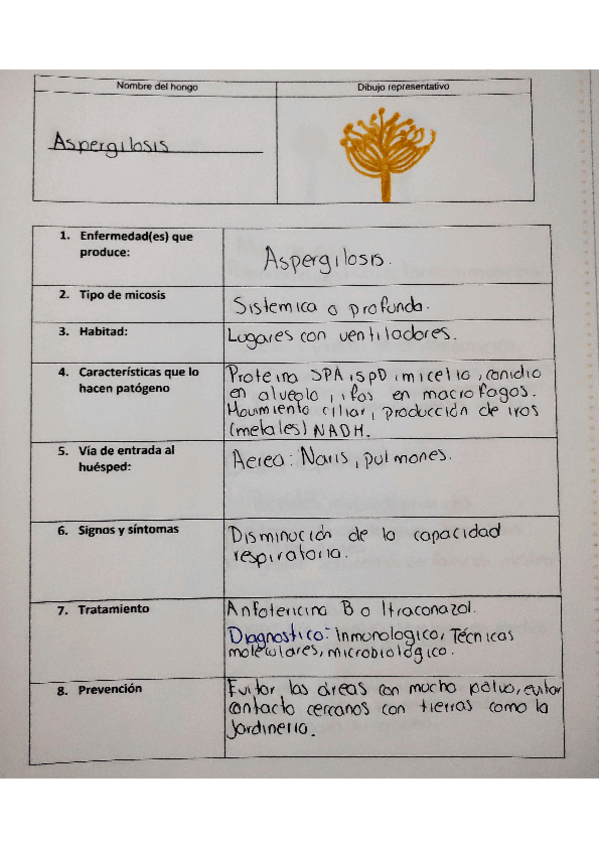 Nombre del hongo
Dibujo representativo
Aspergilosis
1. Enfermedad(es) que
produce:
Aspergilosis.
2. Tipo de micosis
Sistemica o profunda.
3. Habitad:
Lugares con ventiladores.
4. Características que lo
hacen patógeno
Proteina SPA, SPD, micelio, conidio
en alveolo, ifas en macrofagos.
Movimiento ciliar, producción de iros
(metales) NADH.
5. Vía de entrada al
huésped:
Aerea: Naris, pulmones.
6. Signos y síntomas
Disminución de la capacidad
respiratoria.
7. Tratamiento
Anfotericina B o Itraconazol.
Diagnostico: Inmunologico, Técnicas
moleculares, microbiológico.
8. Prevención
Evitar las áreas con mucho polvo, evitar
contacto cercanos con tierras como la
jardineria.